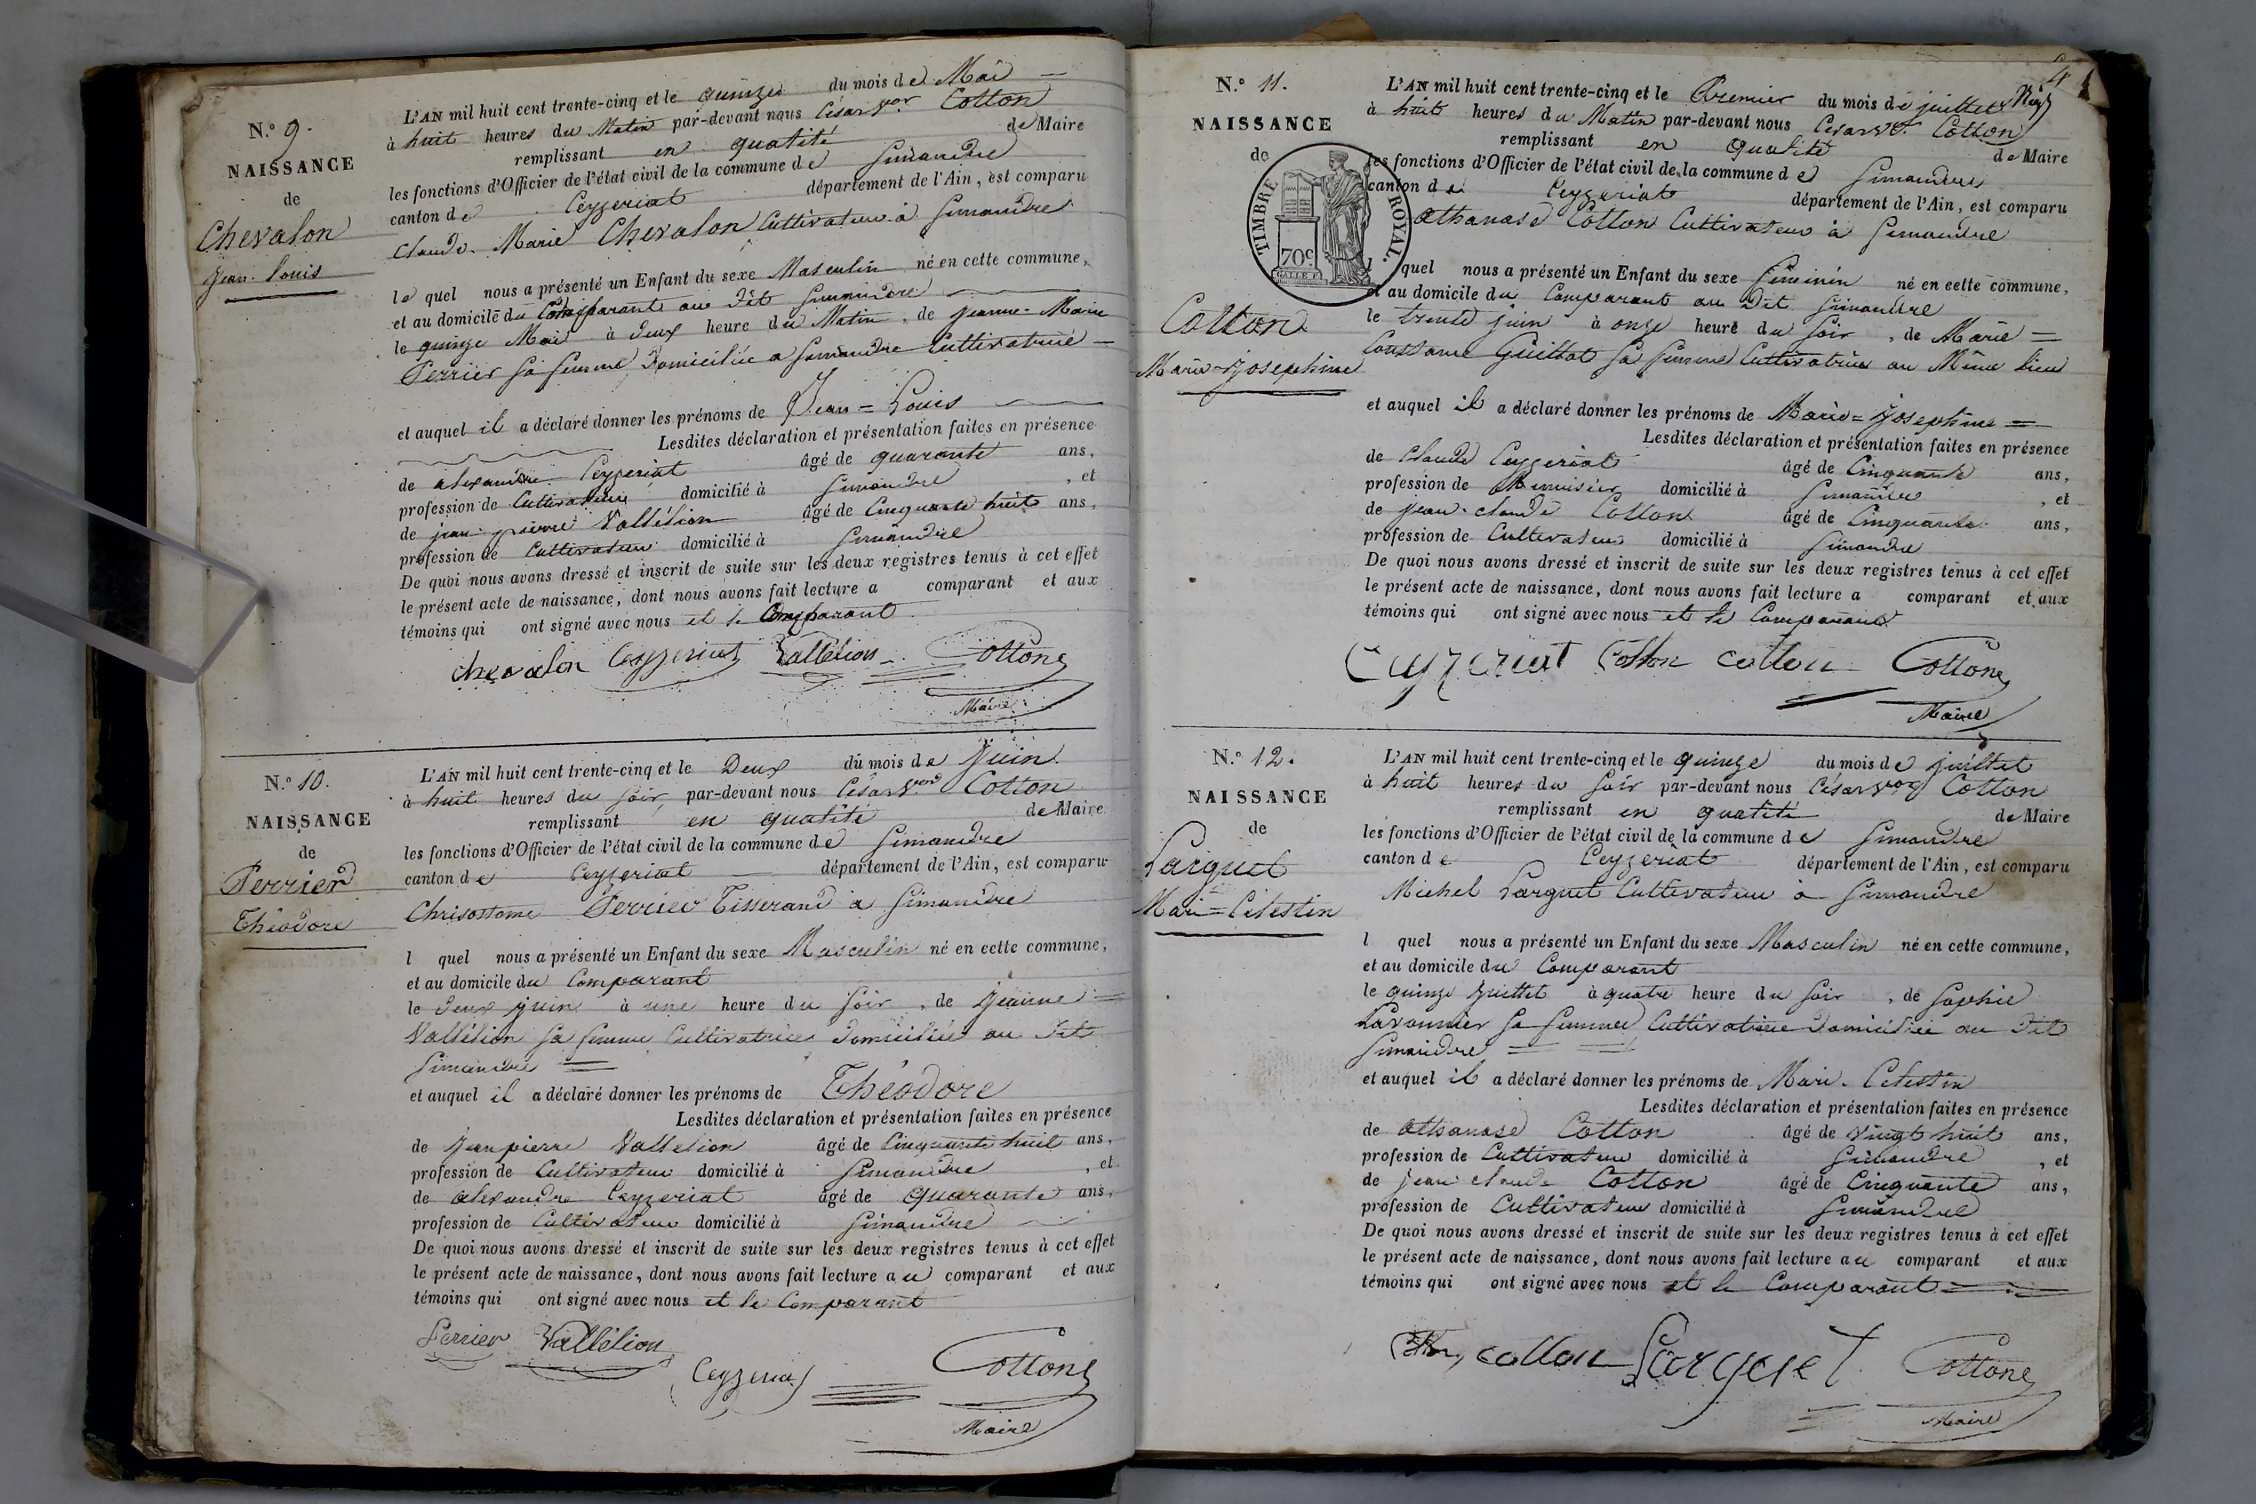 N.° 9.
NAISSANCE
de
Chevalon
Jean-Louis
L'AN mil huit cent trente-cinq et le quinze du mois de Mai
à huit heures du Matin par-devant nous César Vor Cotton
remplissant en qualité de Maire
les fonctions d'Officier de l'état civil de la commune de Simandre
canton de Ceyzeriat département de l'Ain, est comparu
Claude-Marie Chevalon Cultivateur à Simandre
le quel nous a présenté un Enfant du sexe Masculin né en cette commune,
et au domicile du Comparant au Dit Simandre
le quinze Mai à deux heure du Matin, de Jeanne-Marie
Perrier sa femme Domiciliée a Simandre Cultivatrice
et auquel il a déclaré donner les prénoms de Jean=Louis
Lesdites déclaration et présentation faites en présence
de alexandre Ceyzeriat âgé de quarante ans,
profession de Cultivateur domicilié à Simandre, et
de jean-pierre Vallélion âgé de Cinquante huit ans,
profession de Cultivateur domicilié à Simandre
De quoi nous avons dressé et inscrit de suite sur les deux registres tenus à cet effet
le présent acte de naissance, dont nous avons fait lecture a comparant et aux
témoins qui ont signé avec nous et le Comparant
chevalon Ceyzeriat Vallélion Cotton
Maire
N.° 10.
NAISSANCE
de
Perrier
Théodore
L'AN mil huit cent trente-cinq et le Deux du mois de Juin
à huit heures du soir par-devant nous César Vor Cotton
remplissant en qualité de Maire
les fonctions d'Officier de l'état civil de la commune de Simandre
canton de Ceyzeriat département de l'Ain, est comparu
Chrisostome Perrier Tisserand à Simandre
l quel nous a présenté un Enfant du sexe Masculin né en cette commune,
et au domicile du Comparant
le Deux juin à une heure du soir, de Jeanne
Vallélion sa femme Cultivatrice Domiciliée au Dit
Simandre
et auquel il a déclaré donner les prénoms de Théodore
Lesdites déclaration et présentation faites en présence
de Jean pierre Vallelion âgé de Cinquante huit ans,
profession de Cultivateur domicilié à Simandre, et
de alexandre Ceyzeriat âgé de quarante ans,
profession de Cultivateur domicilié à Simandre
De quoi nous avons dressé et inscrit de suite sur les deux registres tenus à cet effet
le présent acte de naissance, dont nous avons fait lecture au comparant et aux
témoins qui ont signé avec nous et le Comparant
Perrier Vallélion
Ceyzeriat Cotton
Maire
4
N.° 11.
NAISSANCE
de
TIMBRE ROYAL.
70c
Cotton
Marie-Josephine
L'AN mil huit cent trente-cinq et le Premier du mois de juillet
à huit heures du Matin par-devant nous César Vor Cotton
remplissant en qualité de Maire
les fonctions d'Officier de l'état civil de la commune de Simandre
canton de Ceyzeriat département de l'Ain, est comparu
Athanase Cotton Cultivateur à Simandre
l quel nous a présenté un Enfant du sexe féminin né en cette commune,
et au domicile du Comparant au Dit Simandre
le trente juin à onze heure du soir, de Marie=
Constance Guillot sa femme Cultivatrice au Même lieu
et auquel il a déclaré donner les prénoms de Marie=Josephine=
Lesdites déclaration et présentation faites en présence
de Claude Ceyzeriat âgé de Cinquante ans,
profession de Menuisier domicilié à Simandre, et
de jean-claude Cotton âgé de Cinquante ans,
profession de Cultivateur domicilié à Simandre
De quoi nous avons dressé et inscrit de suite sur les deux registres tenus à cet effet
le présent acte de naissance, dont nous avons fait lecture a comparant et aux
témoins qui ont signé avec nous et le Comparant
Ceyzeriat Cotton cotton Cotton
Maire
N.° 12.
NAISSANCE
de
Larguet
Mari=Celestin
L'AN mil huit cent trente-cinq et le quinze du mois de juillet
à huit heures du soir par-devant nous César Vor Cotton
remplissant en qualité de Maire
les fonctions d'Officier de l'état civil de la commune de Simandre
canton de Ceyzeriat département de l'Ain, est comparu
Michel Larguet Cultivateur à Simandre
l quel nous a présenté un Enfant du sexe Masculin né en cette commune,
et au domicile du Comparant
le quinze juillet à quatre heure du soir, de Sophie
sa femme Cultivatrice Domiciliée au Dit
Simandre
et auquel il a déclaré donner les prénoms de Mari-Celestin
Lesdites déclaration et présentation faites en présence
de Athanase Cotton âgé de vingt huit ans,
profession de Cultivateur domicilié à Simandre, et
de jean claude Cotton âgé de Cinquante ans,
profession de Cultivateur domicilié à Simandre
De quoi nous avons dressé et inscrit de suite sur les deux registres tenus à cet effet
le présent acte de naissance, dont nous avons fait lecture au comparant et aux
témoins qui ont signé avec nous et le Comparant
cotton Larguet Cotton
Maire